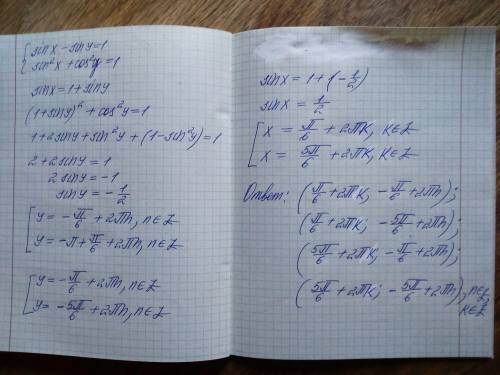 { sin x - sin y = 1
sin² x + cos² y = 1
sin x = 1 + sin y
(1 + sin y)² + cos² y = 1
1 + 2 sin y + sin² y + (1 - sin² y) = 1
2 + 2 sin y = 1
2 sin y = -1
sin y = - 1/2
[ y = - π/6 + 2πn, n∈Z
y = -π + π/6 + 2πn, n∈Z
[ y = - π/6 + 2πn, n∈Z
y = - 5π/6 + 2πn, n∈Z
sin x = 1 + (- 1/2)
sin x = 1/2
[ x = π/6 + 2πk, k∈Z
x = 5π/6 + 2πk, k∈Z
Ответ: (π/6 + 2πk; - π/6 + 2πn);
(π/6 + 2πk; - 5π/6 + 2πn);
(5π/6 + 2πk; - π/6 + 2πn);
(5π/6 + 2πk; - 5π/6 + 2πn), n∈Z,
k∈Z